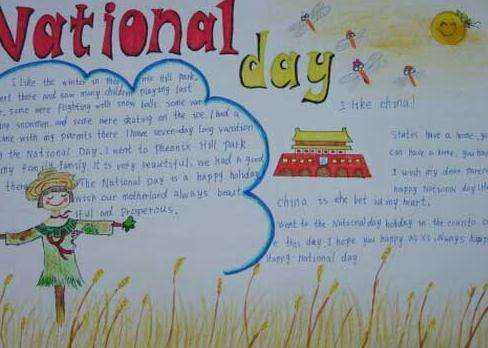 National
day
I like the winter in the Hill park.
went there and saw many children playing last
some were flighting with snow balls. some wer
snowmen. and some were skating on the ice. I had a
time with my parents there I have seven-day long vacation
the National Day. I went to Pheonix Hill park
my family family. It is very beautiful. we had a good
there The National Day is a happy holiday
wish our motherland always beaut
iful and Properous.
I like china!
States have a home, yo
can have a home, you hav
I wish my dear paren
happy National day
China is the bet in my heart.
went to the National day holiday in the
this day. I hope you happy as is always happ
Happy National day